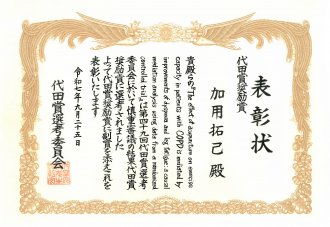 表彰状
代田賞奨励賞
加用拓己 殿
貴殿らの"The effect of acupuncture on exercise
capacity in patients with COPD is mediated by
improvements of dyspnea and leg fatigue: a causal
mediation analysis using data from a randomized
controlled trial"は第四十九回代田賞選考
委員会に於いて慎重審議の結果代田賞
奨励賞に選考されました
よって代田賞奨励賞に副賞を添えこれを
表彰いたします
令和七年九月二十五日
代田賞選考委員会